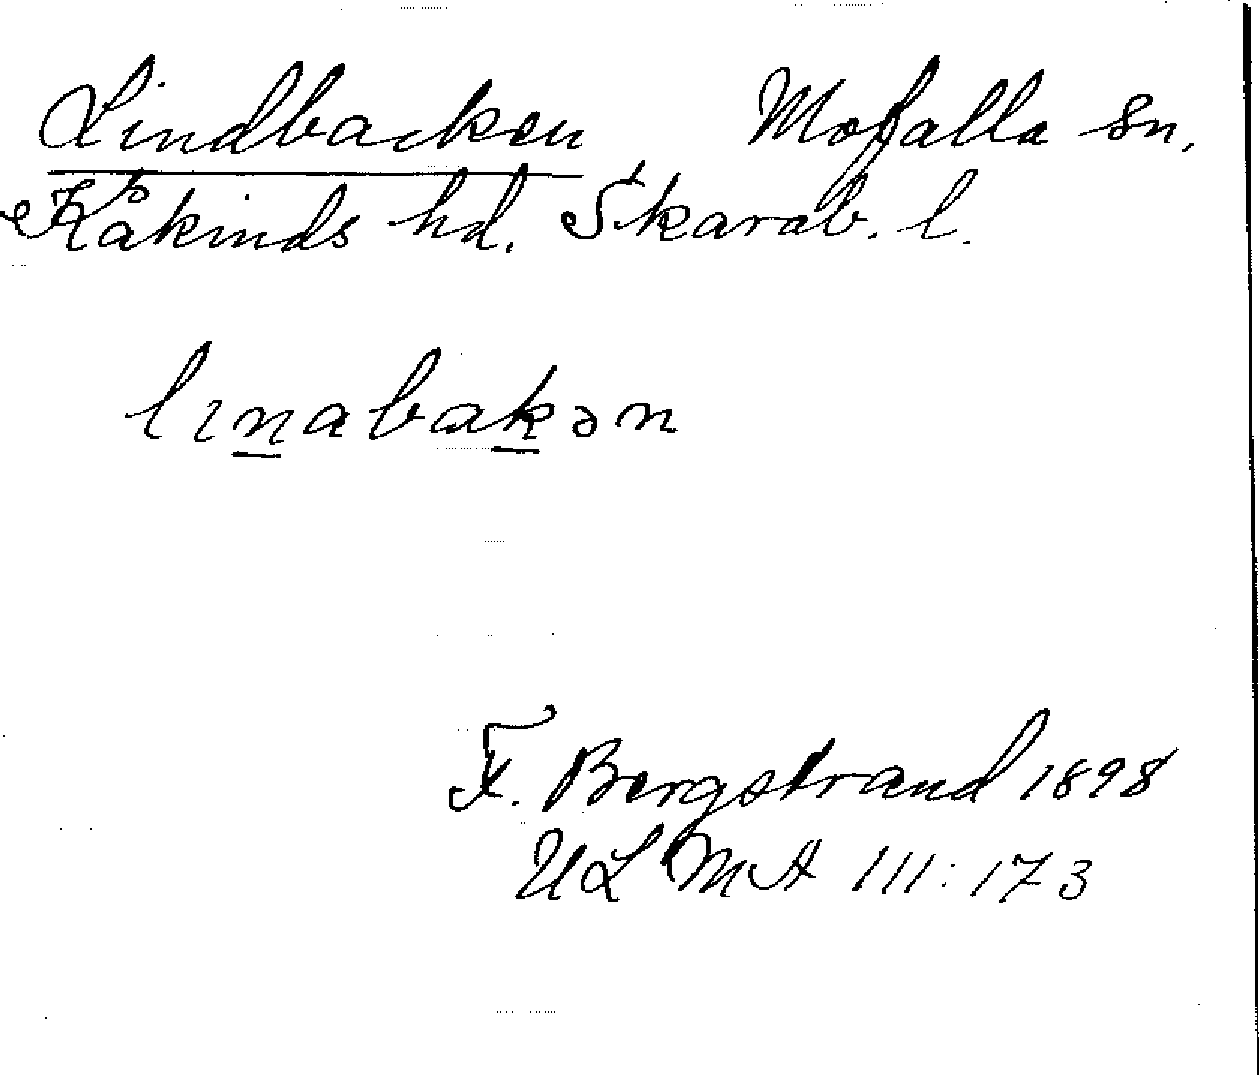 Lindbacken Mofalla sn.
Kåkinds hd. Skarab. l.
lɩnabakən
F. Bergstrand 1898
ULMA 111:173